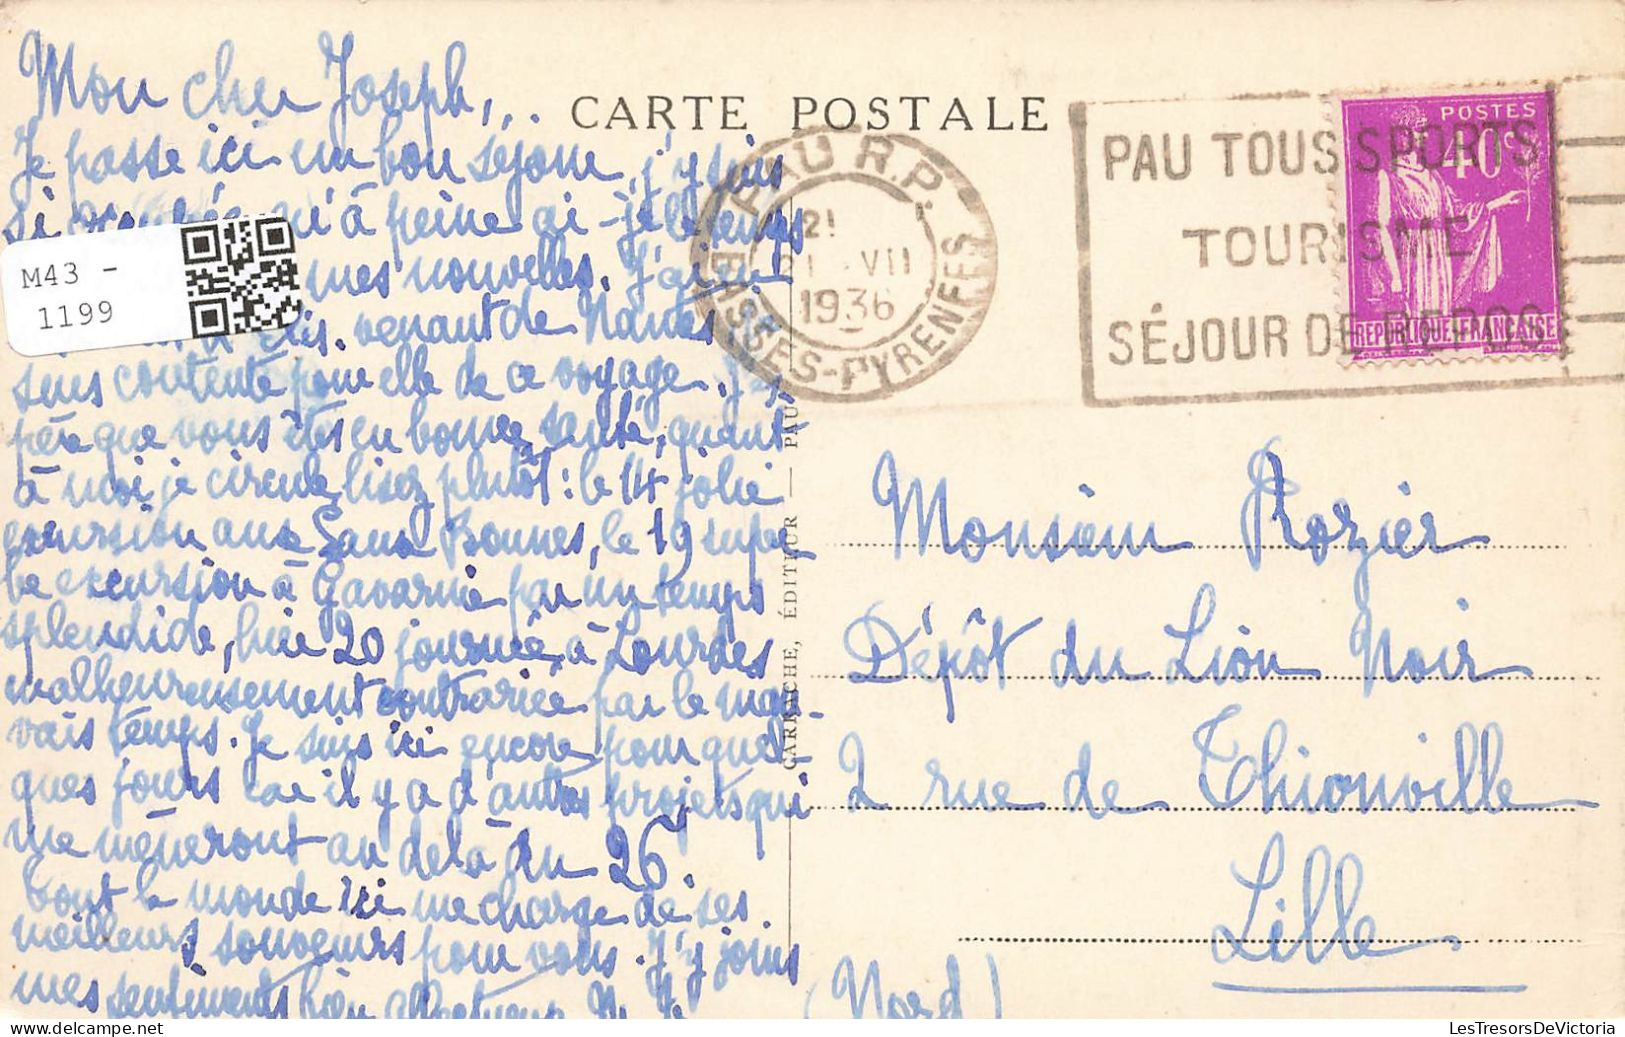 Mon cher Joseph,..
Je passe ici un bon séjour, j'y suis
si qu'à peine ai-je le temps
mes nouvelles. J'ai eu
venant de Nantes
contente pour elle de ce voyage. J'es
père que vous êtes en bonne santé, quant
à moi, je circule, lisez plutôt : le 14 jolie
excursion aux Eaux Bonnes, le 19 super
be excursion à Gavarnie par un temps
splendide, hier 20 journée à Lourdes
malheureusement contrariée par le mau-
vais temps. Je suis ici encore pour quel-
ques jours car il y a d'autres projets qui
me mèneront au delà du 26.
Tout le monde ici me charge de ses
meilleurs souvenirs pour vous. J'y joins
mes sentiments bien affectueux
M43 -
1199
CARTE POSTALE
PAU R.P.
21
VII
1936
BASSES-PYRENEES
PAU TOUS SPORTS
TOURISME
SÉJOUR DE REPOS
POSTES
40c
REPUBLIQUE FRANCAISE
CARRACHE, ÉDITEUR — PAU
Monsieur Rozier
Dépôt du Lion Noir
2 rue de Thionville
Lille
(Nord)
LesTresorsDeVictoria.com